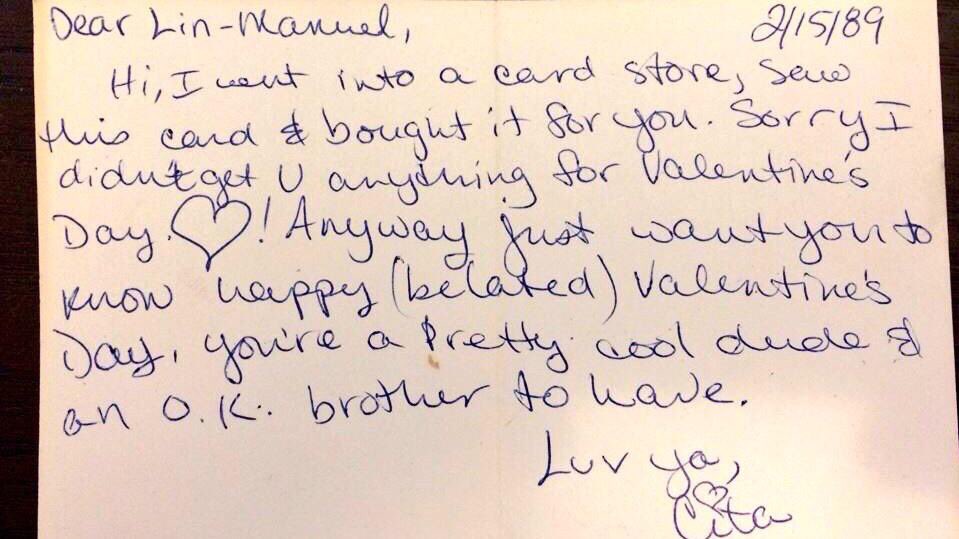 Dear Lin-Manuel, 2/15/89
Hi, I went into a card store, saw
this card & bought it for you. Sorry I
didn't get U anything for Valentine's
Day. ♡! Anyway just want you to
know happy (belated) Valentine's
Day, you're a pretty cool dude &
an O.K. brother to have.
Luv ya,
Cita